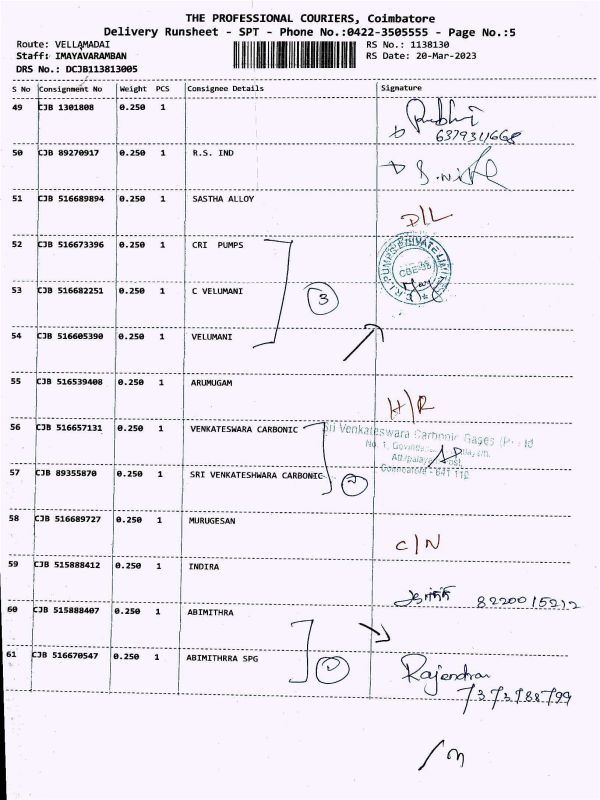 THE PROFESSIONAL COURIERS, Coimbatore
Delivery Runsheet - SPT - Phone No.:0422-3505555 - Page No.:5
Route: VELLAMADAI RS No.: 1138130
Staff: IMAYAVARAMBAN RS Date: 20-Mar-2023
DRS No.: DCJB113813005
S No Consignment No Weight PCS Consignee Details Signature
49 CJB 1301808 0.250 1
50 CJB 89270917 0.250 1 R.S. IND
51 CJB 516689894 0.250 1 SASTHA ALLOY
D/L
52 CJB 516673396 0.250 1 CRI PUMPS
53 CJB 516682251 0.250 1 C VELUMANI
3
54 CJB 516605390 0.250 1 VELUMANI
55 CJB 516539408 0.250 1 ARUMUGAM
H/R
56 CJB 516657131 0.250 1 VENKATESWARA CARBONIC
Sri Venkateswara Carbonic Gases
No. 1,
57 CJB 89355870 0.250 1 SRI VENKATESHWARA CARBONIC
2
Coimbatore - 641 110
58 CJB 516689727 0.250 1 MURUGESAN
C/N
59 CJB 515888412 0.250 1 INDIRA
8220015212
60 CJB 515888407 0.250 1 ABIMITHRA
61 CJB 516670547 0.250 1 ABIMITHRRA SPG
Rajendran
7373788799